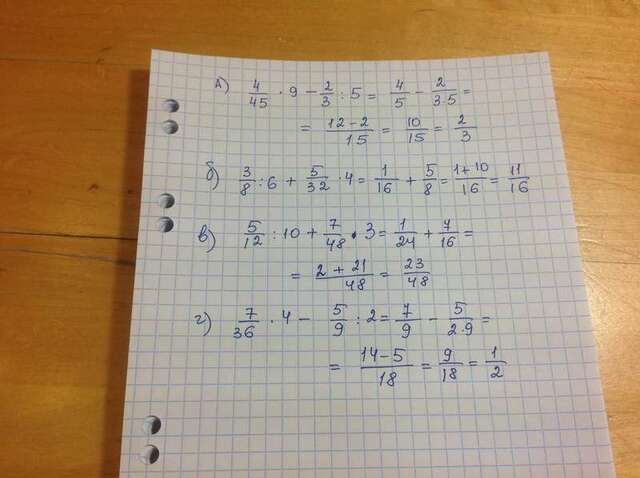 а) 4/45 · 9 − 2/3 : 5 = 4/5 − 2/3·5 =
= 12−2/15 = 10/15 = 2/3
б) 3/8 : 6 + 5/32 · 4 = 1/16 + 5/8 = 1+10/16 = 11/16
в) 5/12 : 10 + 7/48 · 3 = 1/24 + 7/16 =
= 2+21/48 = 23/48
г) 7/36 · 4 − 5/9 : 2 = 7/9 − 5/2·9 =
= 14−5/18 = 9/18 = 1/2